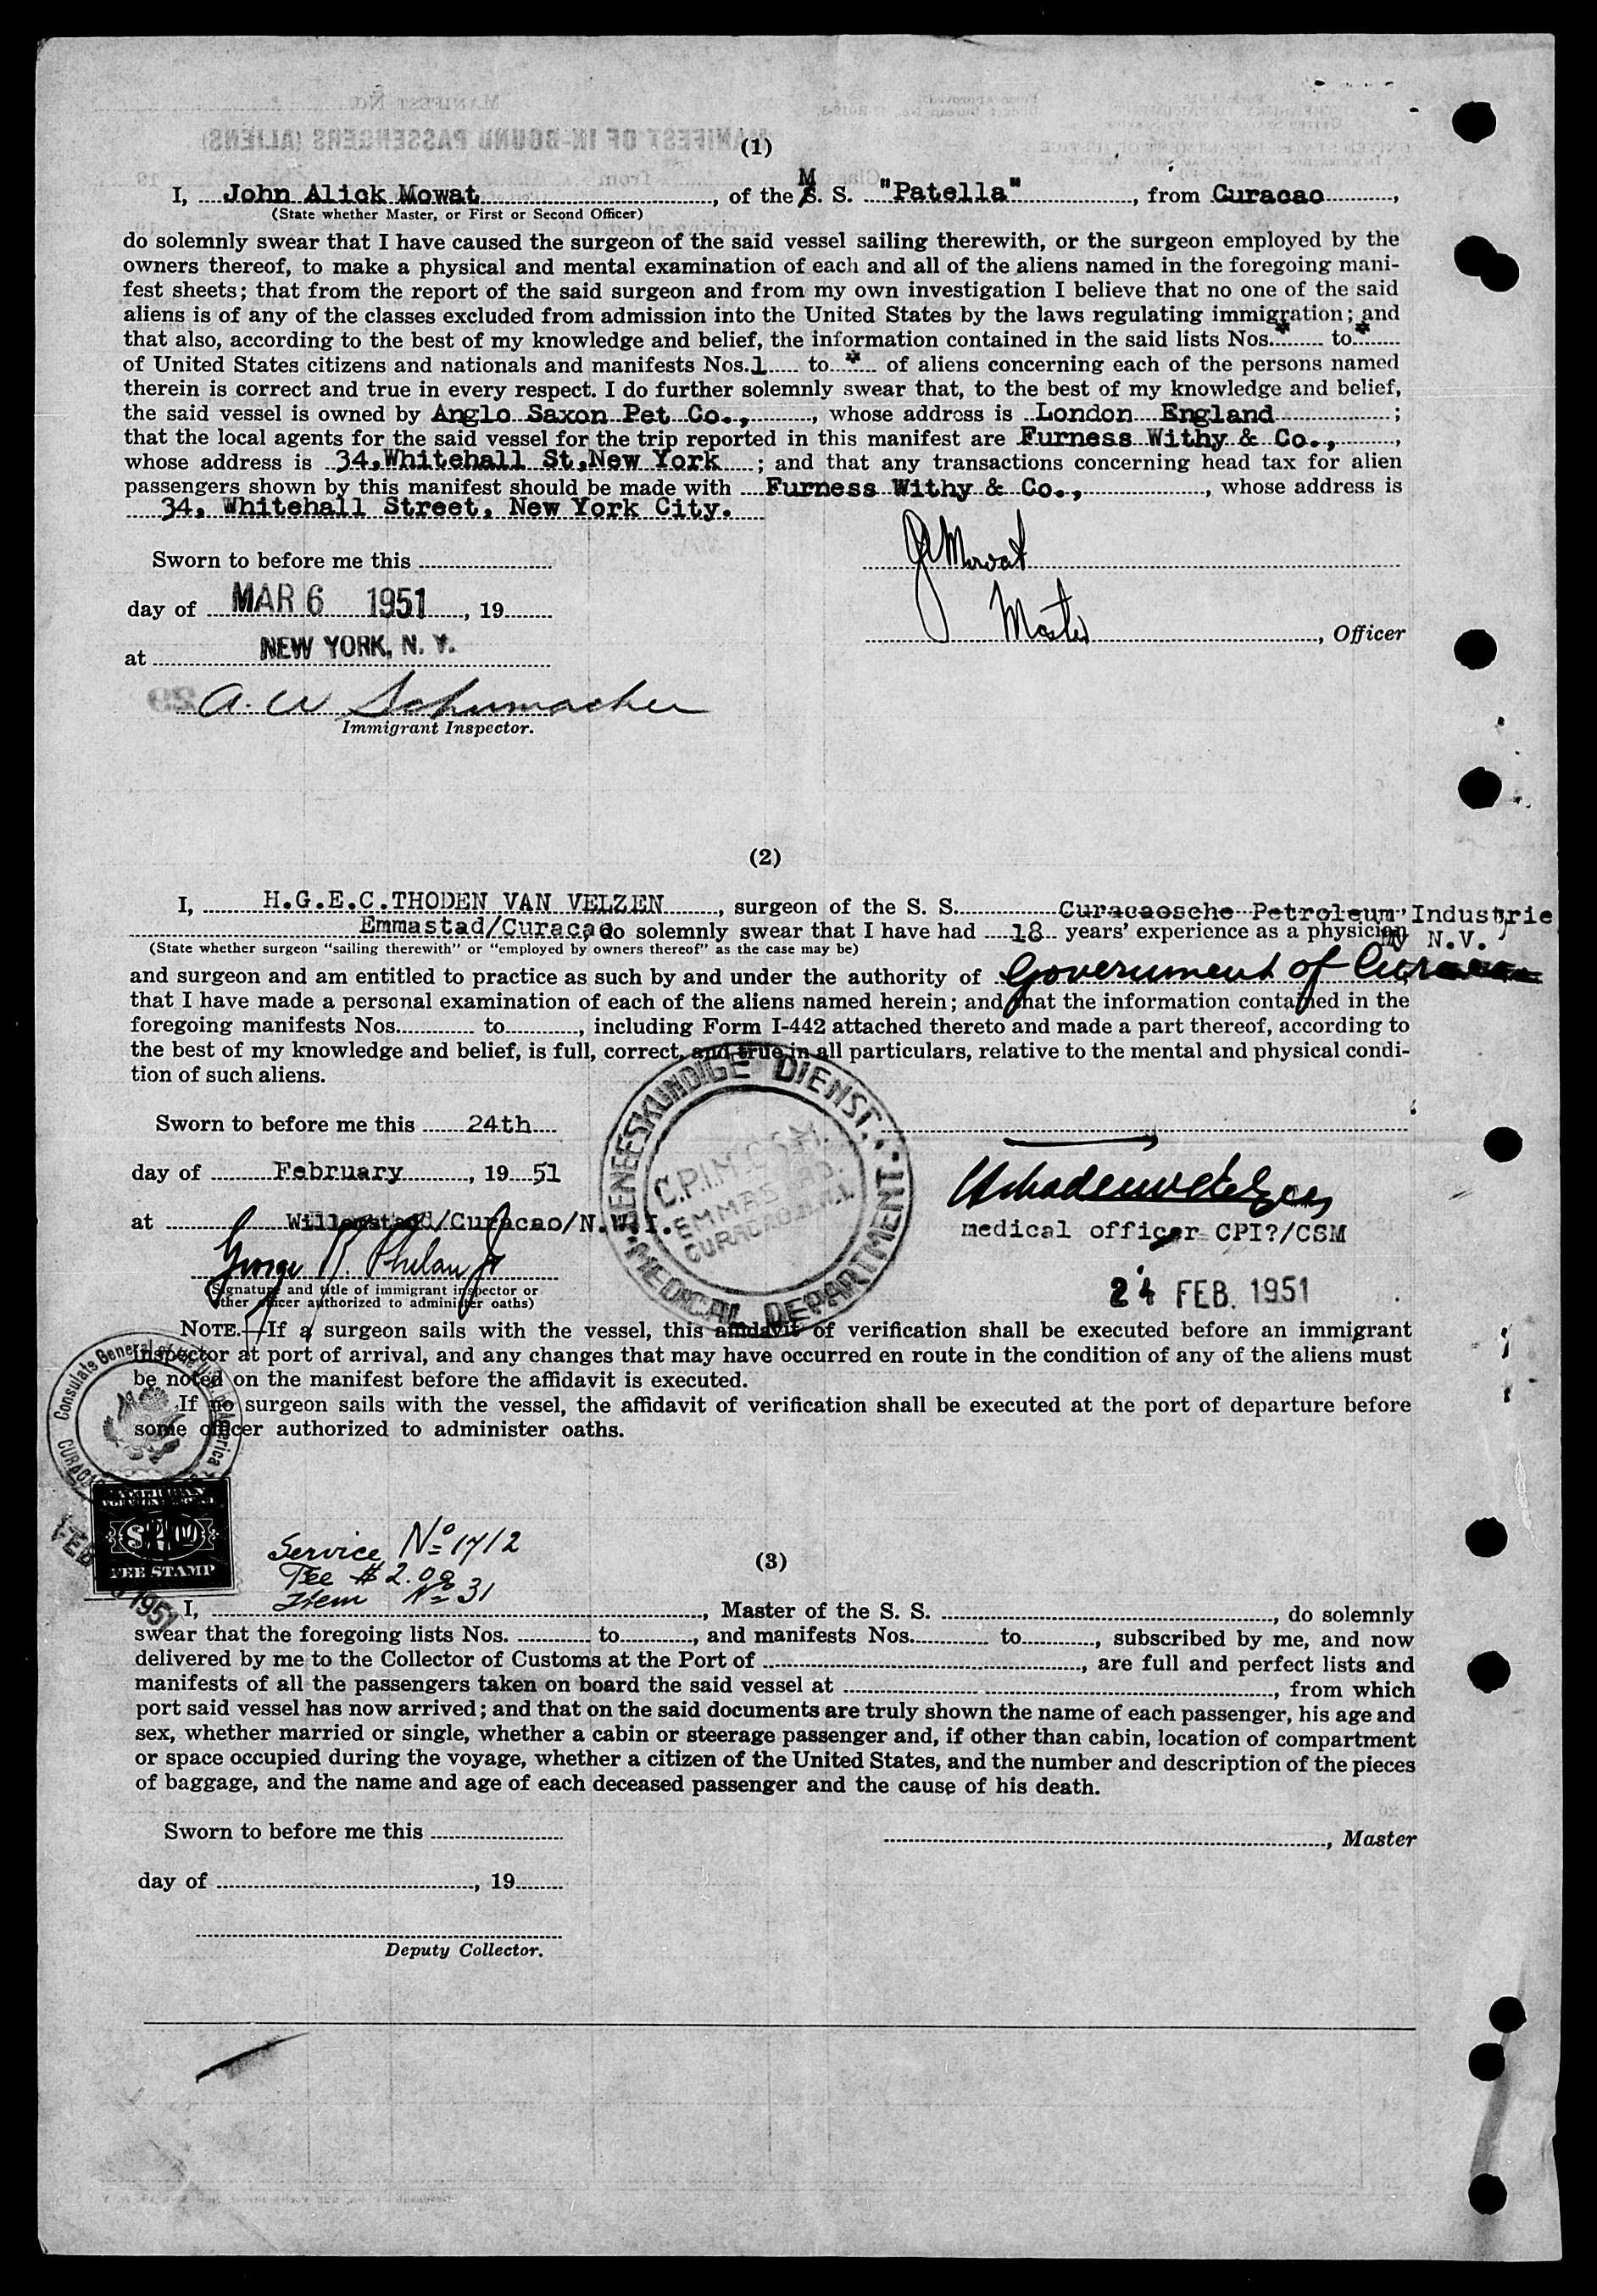 MANIFEST No.
MANIFEST OF IN-BOUND PASSENGERS (ALIENS)
(1)
I, John Alick Mowat, of the M S. S. "Patella", from Curacao,
(State whether Master, or First or Second Officer)
do solemnly swear that I have caused the surgeon of the said vessel sailing therewith, or the surgeon employed by the
owners thereof, to make a physical and mental examination of each and all of the aliens named in the foregoing mani-
fest sheets; that from the report of the said surgeon and from my own investigation I believe that no one of the said
aliens is of any of the classes excluded from admission into the United States by the laws regulating immigration; and
that also, according to the best of my knowledge and belief, the information contained in the said lists Nos. * to *
of United States citizens and nationals and manifests Nos. 1 to * of aliens concerning each of the persons named
therein is correct and true in every respect. I do further solemnly swear that, to the best of my knowledge and belief,
the said vessel is owned by Anglo Saxon Pet Co., , whose address is London England ;
that the local agents for the said vessel for the trip reported in this manifest are Furness Withy & Co., ,
whose address is 34, Whitehall St, New York ; and that any transactions concerning head tax for alien
passengers shown by this manifest should be made with Furness Withy & Co., , whose address is
34, Whitehall Street, New York City.
Sworn to before me this
JAMowat
day of MAR 6 1951, 19
Master, Officer
at NEW YORK, N. Y.
A. W. Schumacher
Immigrant Inspector.
(2)
I, H.G.E.C. THODEN VAN VELZEN, surgeon of the S. S. Curacaosche Petroleum Industrie
Emmastad/Curacao do solemnly swear that I have had 18 years' experience as a physician N.V.
(State whether surgeon "sailing therewith" or "employed by owners thereof" as the case may be)
and surgeon and am entitled to practice as such by and under the authority of Government of Curacao
that I have made a personal examination of each of the aliens named herein; and that the information contained in the
foregoing manifests Nos. to , including Form I-442 attached thereto and made a part thereof, according to
the best of my knowledge and belief, is full, correct, and true in all particulars, relative to the mental and physical condi-
tion of such aliens.
GENEESKUNDIGE DIENST.
C.P.I.M. C.S.M.
EMMASTAD.
CURACAO N.W.I.
MEDICAL DEPARTMENT
Sworn to before me this 24th
day of February, 19 51
at Willemstad/Curacao/N.W.I.
medical officer CPI?/CSM
George R. Phelan Jr
(Signature and title of immigrant inspector or
other officer authorized to administer oaths)
24 FEB. 1951
NOTE.—If a surgeon sails with the vessel, this affidavit of verification shall be executed before an immigrant
inspector at port of arrival, and any changes that may have occurred en route in the condition of any of the aliens must
be noted on the manifest before the affidavit is executed.
If no surgeon sails with the vessel, the affidavit of verification shall be executed at the port of departure before
some officer authorized to administer oaths.
Consulate General of the U.S. of America
CURACAO
AMERICAN
FEE STAMP
FEB 1951
Service No 1712
Fee $2.00
Item No 31
(3)
I, , Master of the S. S. , do solemnly
swear that the foregoing lists Nos. to , and manifests Nos. to , subscribed by me, and now
delivered by me to the Collector of Customs at the Port of , are full and perfect lists and
manifests of all the passengers taken on board the said vessel at , from which
port said vessel has now arrived; and that on the said documents are truly shown the name of each passenger, his age and
sex, whether married or single, whether a cabin or steerage passenger and, if other than cabin, location of compartment
or space occupied during the voyage, whether a citizen of the United States, and the number and description of the pieces
of baggage, and the name and age of each deceased passenger and the cause of his death.
Sworn to before me this
, Master
day of , 19
Deputy Collector.